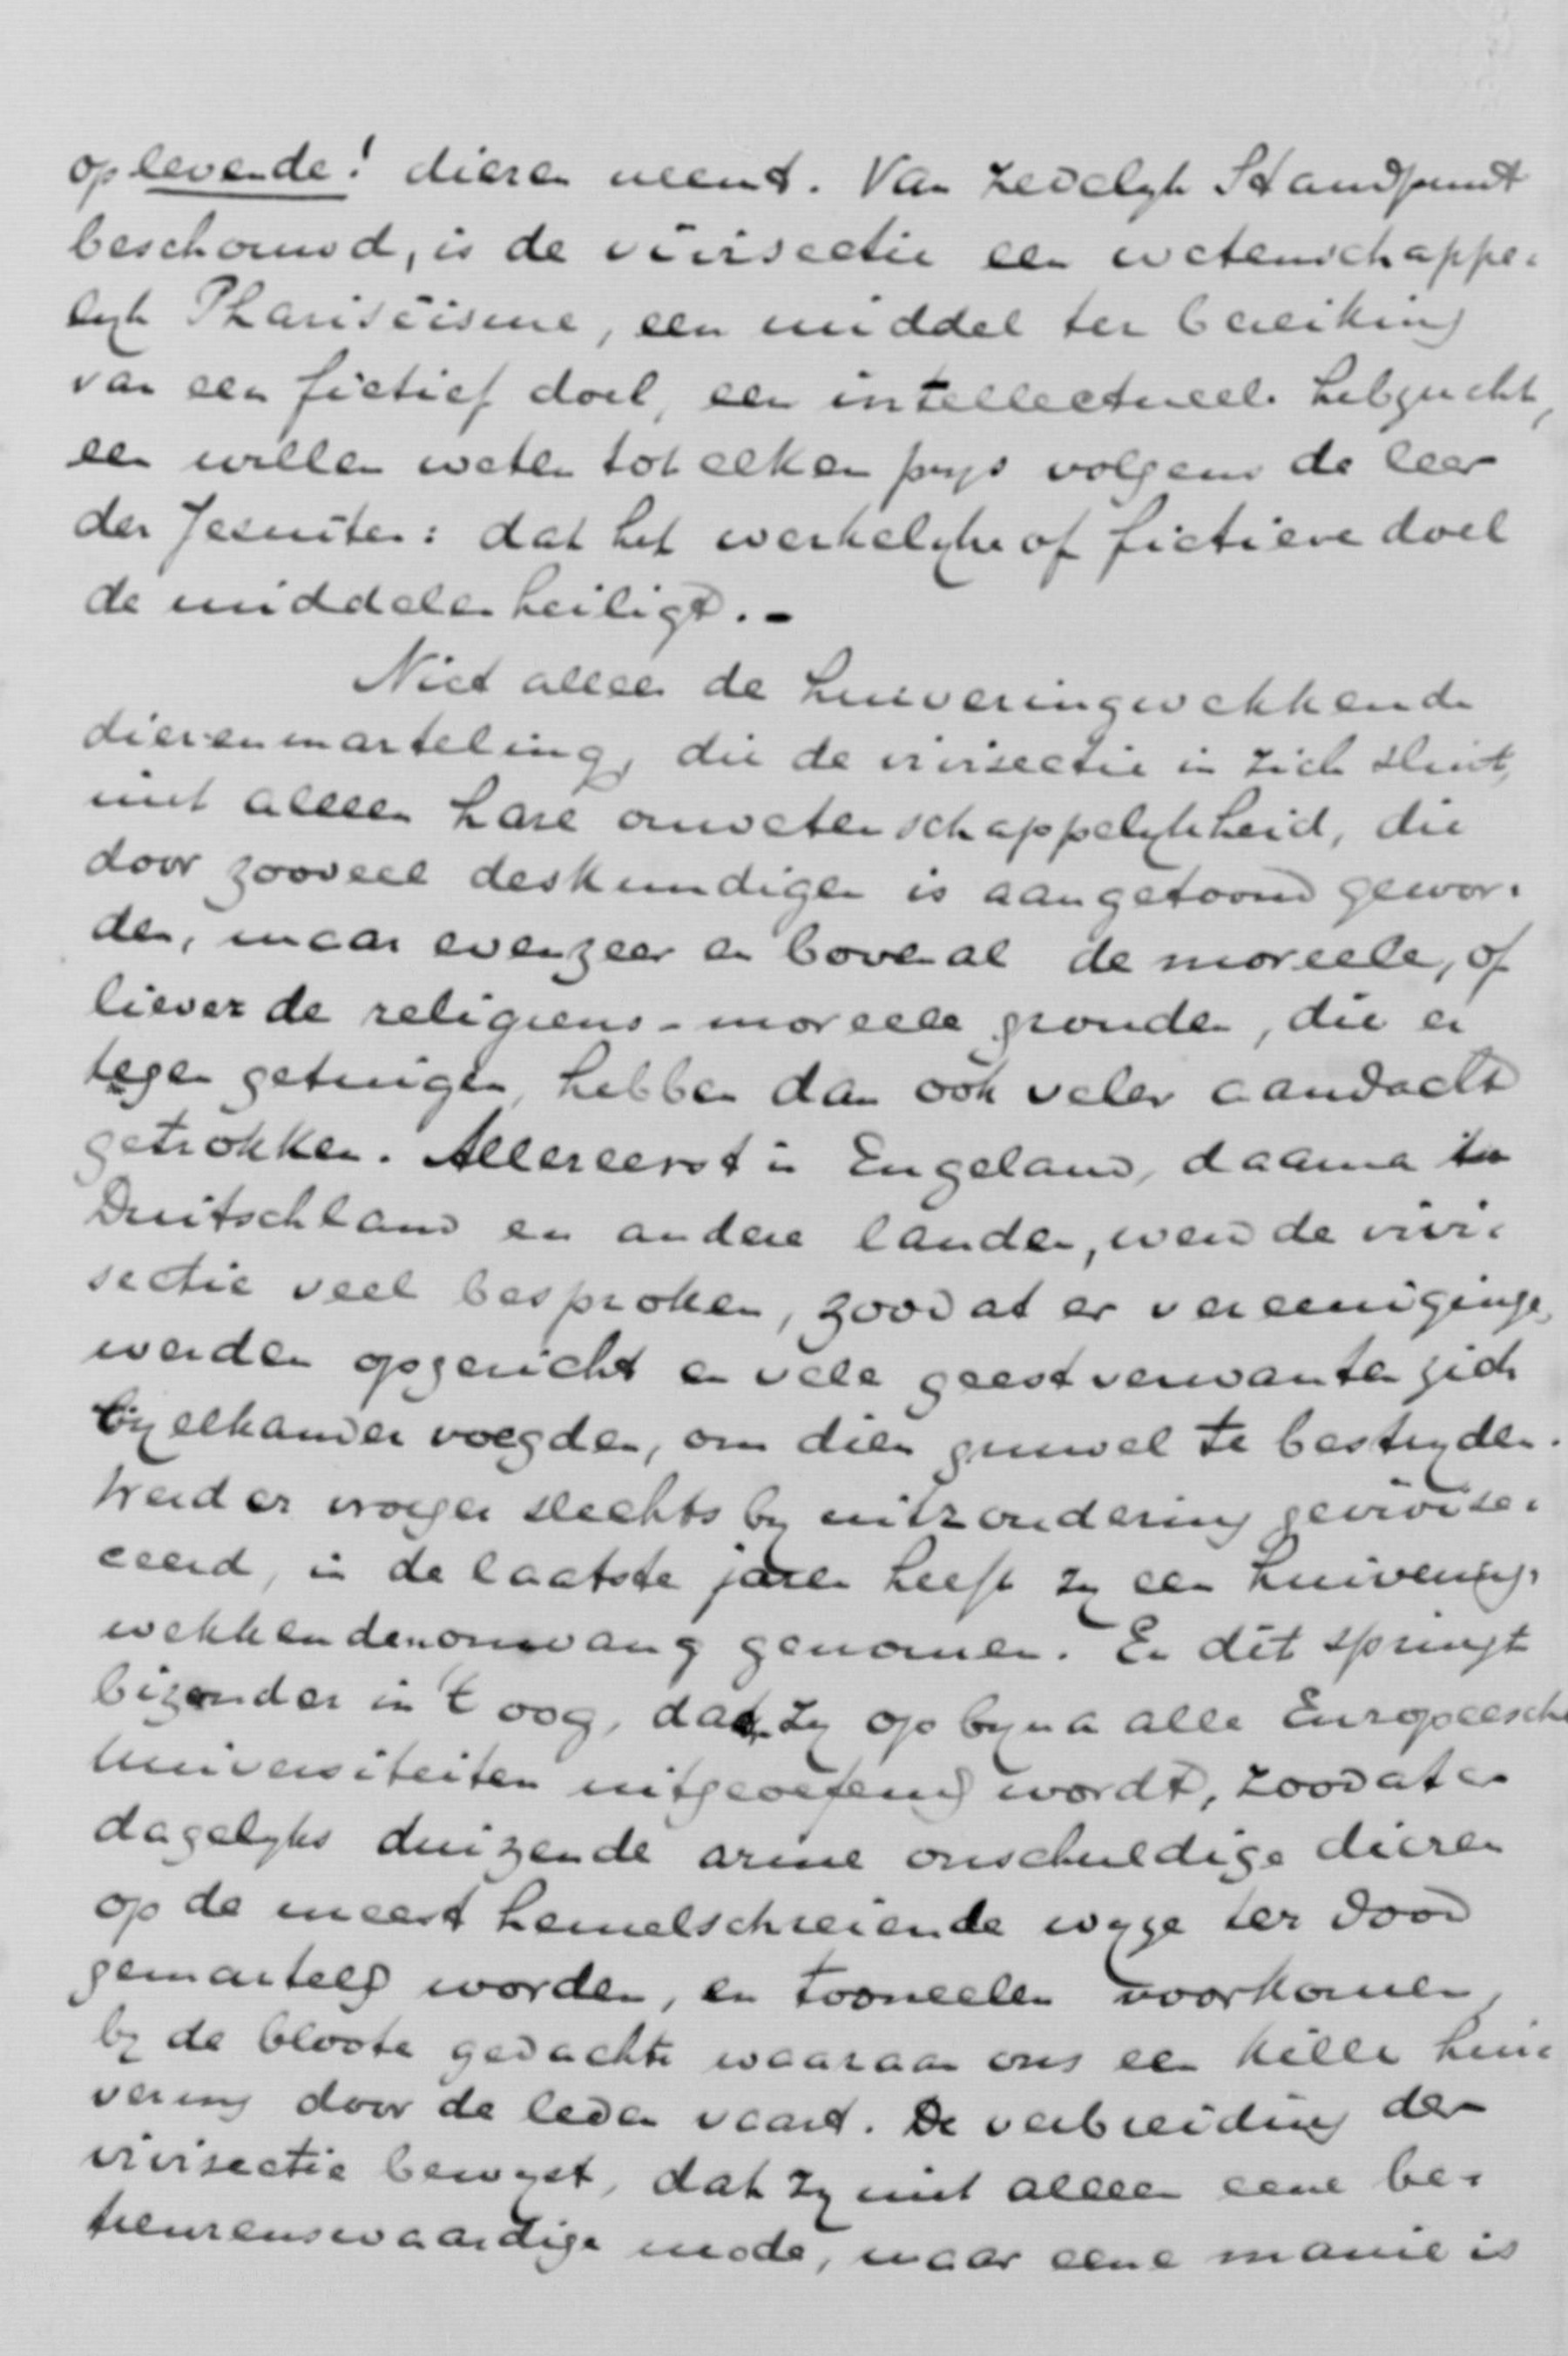 op levende! dieren neemt. Van zedelyk Standpunt
beschouwd, is de vivisectie een wetenschappe-
lyk Phariseïsme, een middel ter bereiking
van een fictief doel, een intellectueele hebzucht,
een willen weten tot elken prys volgens de leer
der Jesuiten: dat het werkelyke of fictieve doel
de middelen heiligt. -
Niet alleen de huiveringwekkende
dierenmarteling, die de vivisectie in zich sluit,
niet alleen hare onwetenschappelykheid, die
door zooveel deskundigen is aangetoond gewor-
den, maar evenzeer en bovenal de moreele, of
liever de religieus-moreele gronden, die er
tegen getuigen, hebben dan ook veler aandacht
getrokken. Allereerst in Engeland, daarna in
Duitschland en andere landen, werd de vivi-
sectie veel besproken, zoodat er vereenigingen
werden opgericht en vele geestverwanten zich
by elkander voegden, om dien gruwel te bestryden.
Werd er vroeger slechts by uitzondering gevivise-
ceerd, in de laatste jaren heeft zy een huivering-
wekkenden omvang genomen. En dit springt
bizonder in 't oog, dat zy op byna alle Europeesche
Universiteiten uitgeoefend wordt, zoodat er
dagelyks duizende arme onschuldige dieren
op de meest hemelschreiende wyze ter dood
gemarteld worden, en tooneelen voorkomen,
by de bloote gedachte waaraan ons een kille hui-
vering door de leden vaart. De verbreiding der
vivisectie bewyst, dat zy niet alleen eene be-
treurenswaardige mode, maar eene manie is